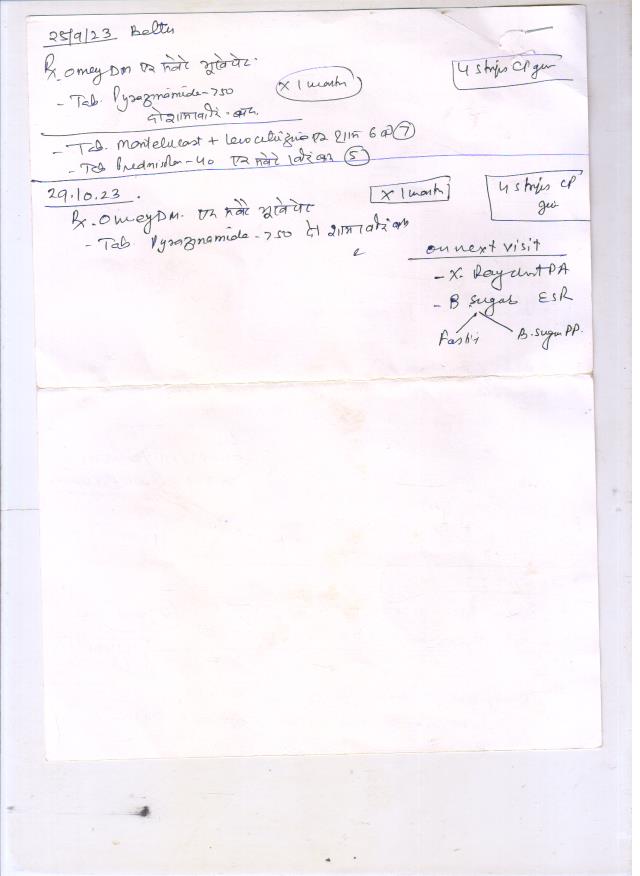 25/9/23 Better
Rx. Omez DM एक सवेरे भूखेपेट.
4 strips CP given
- Tab. Pyrazinamide-750
x 1 month
दो शाम
- Tab. Montelucast + Levocetirizine एक शाम 6 7
- Tab Prednisolon-40 एक सवेरे 5
29.10.23.
x 1 month
4 strips CP
given
Rx. Omez DM. एक सवेरे भूखेपेट
- Tab. Pyrazinamide-750 दो शाम
on next visit
- X. Ray chest PA
- B Sugar ESR
Fasting
B. Sugar PP.